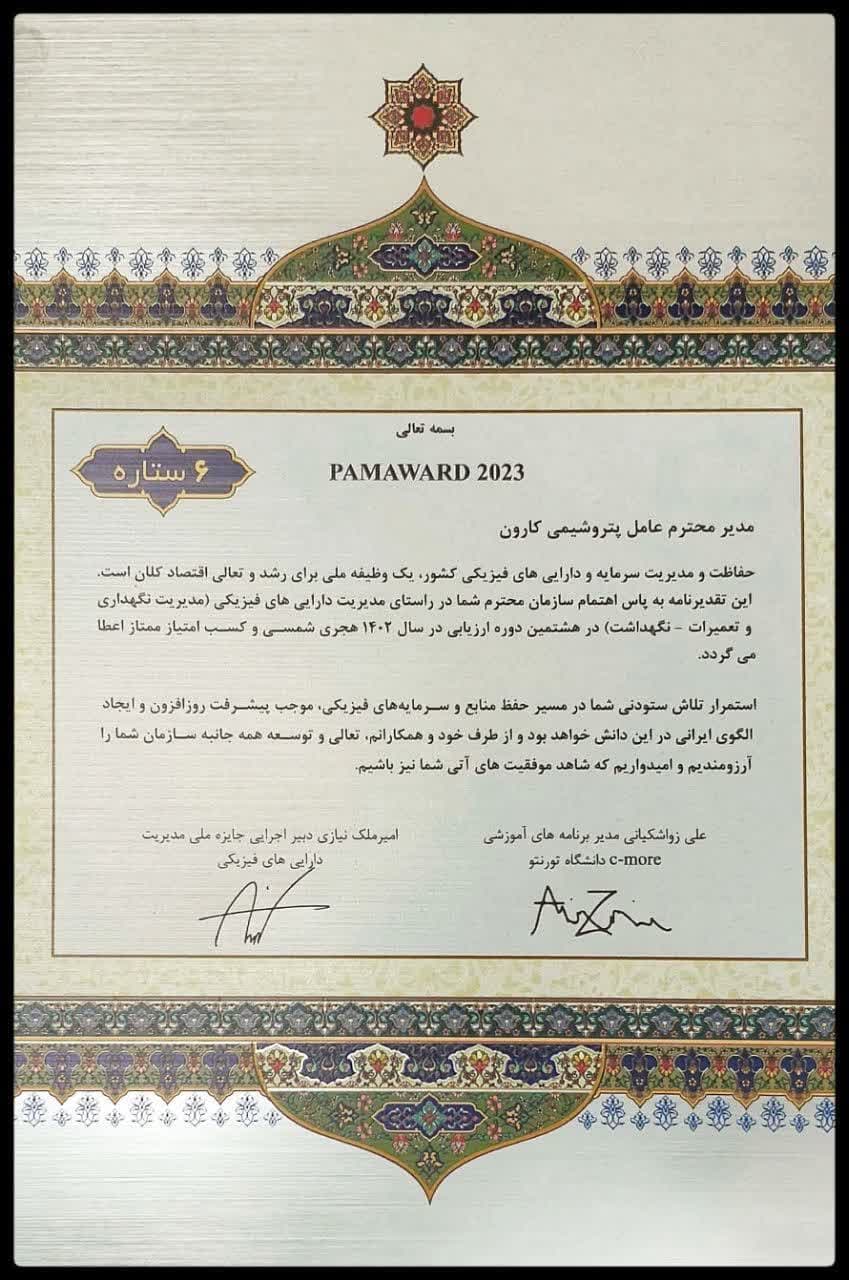 بسمه تعالی
۶ ستاره
PAMAWARD 2023
مدیر محترم عامل پتروشیمی کارون
حفاظت و مدیریت سرمایه و دارایی های فیزیکی کشور، یک وظیفه ملی برای رشد و تعالی اقتصاد کلان است.
این تقدیرنامه به پاس اهتمام سازمان محترم شما در راستای مدیریت دارایی های فیزیکی (مدیریت نگهداری
و تعمیرات - نگهداشت) در هشتمین دوره ارزیابی در سال ۱۴۰۲ هجری شمسی و کسب امتیاز ممتاز اعطا
می گردد.
استمرار تلاش ستودنی شما در مسیر حفظ منابع و سرمایه‌های فیزیکی، موجب پیشرفت روزافزون و ایجاد
الگوی ایرانی در این دانش خواهد بود و از طرف خود و همکارانم، تعالی و توسعه همه جانبه سازمان شما را
آرزومندیم و امیدواریم که شاهد موفقیت های آتی شما نیز باشیم.
علی زواشکیانی مدیر برنامه های آموزشی
c-more دانشگاه تورنتو
امیرملک نیازی دبیر اجرایی جایزه ملی مدیریت
دارایی های فیزیکی